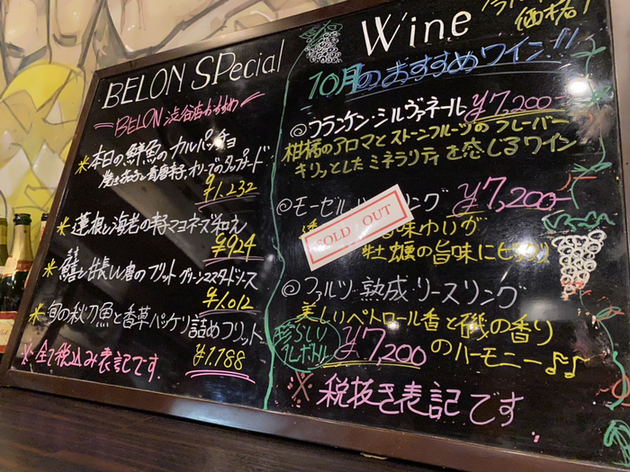 BELON SPecial
BELON 渋谷店おすすめ
*本日の鮮魚のカルパッチョ
オリーブのタップナード
¥1,232
*蓮根と海老の特マヨネーズ和え
¥924
フリット グリーンマスタードソース
¥1,012
*旬の秋刀魚と香草パッケリ詰めフリット
¥1188
※全て税込み表記です
Wine
10月のおすすめワイン!!
◎フランケン・シルヴァネール ¥7,200-
柑橘のアロマとストーンフルーツのフレーバー
キリッとしたミネラリティを感じるワイン
◎モーゼル リング ¥7,200-
SOLD OUT
味わいが
牡蠣の旨味にピッタリ
◎ファルツ・熟成・リースリング
美しいペトロール香と磯の香り
のハーモニー♪♪
珍しい
1Lボトル
¥7,200
※税抜き表記です